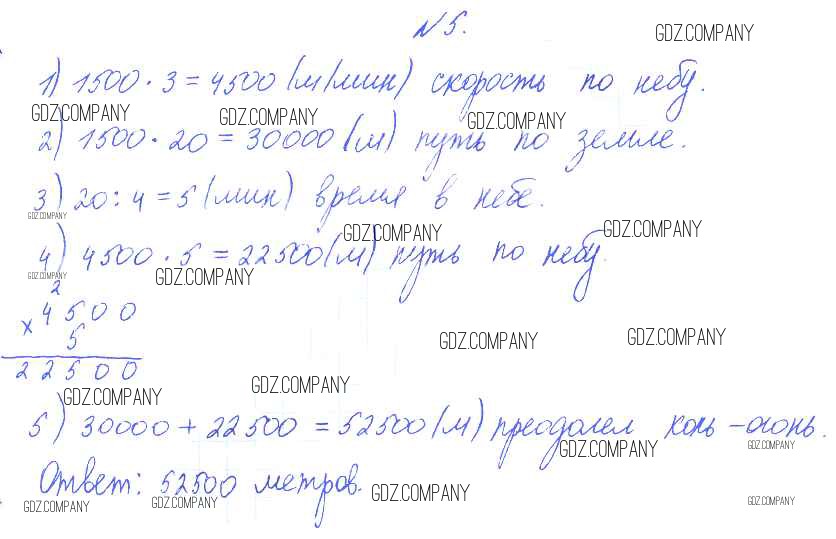 N 5.
GDZ.COMPANY
1) 1500 · 3 = 4500 (м/мин) скорость по небу.
GDZ.COMPANY GDZ.COMPANY GDZ.COMPANY
2) 1500 · 20 = 30000 (м) путь по земле.
3) 20 : 4 = 5 (мин) время в небе.
GDZ.COMPANY GDZ.COMPANY GDZ.COMPANY
4) 4500 · 5 = 22500 (м) путь по небу.
GDZ.COMPANY GDZ.COMPANY
2
x 4500
5
GDZ.COMPANY GDZ.COMPANY
22500
GDZ.COMPANY GDZ.COMPANY
5) 30000 + 22500 = 52500 (м) преодолел конь-огонь.
GDZ.COMPANY GDZ.COMPANY
Ответ: 52500 метров.
GDZ.COMPANY GDZ.COMPANY GDZ.COMPANY GDZ.COMPANY